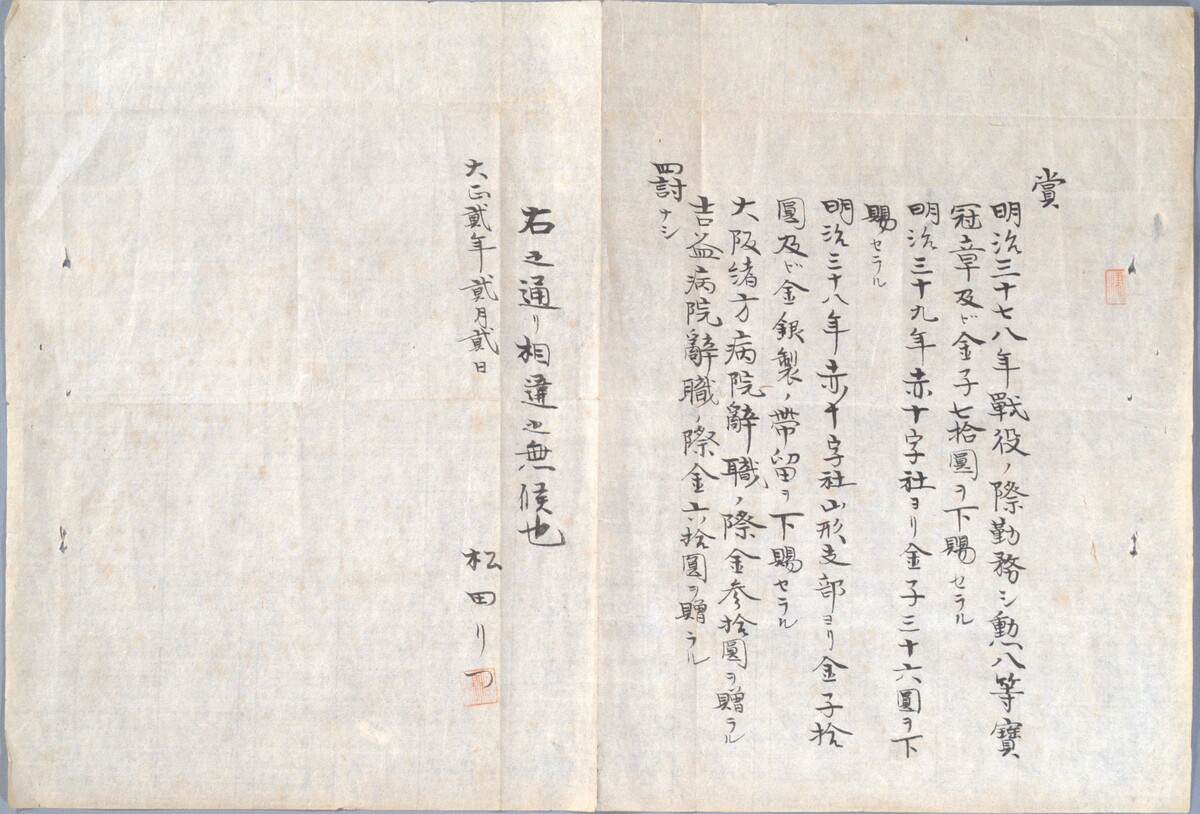 賞
明治三十七八年戰役ノ際勤務シ勲八等寶
冠章及ビ金子七拾圓ヲ下賜セラル
明治三十九年赤十字社ヨリ金子三十六圓ヲ下
賜セラル
明治三十八年赤十字社山形支部ヨリ金子拾
圓及ビ金銀製ノ帶留ヲ下賜セラル
大阪緒方病院辭職ノ際金参拾圓ヲ贈ラル
吉益病院辭職ノ際金六拾圓ヲ贈ラル
罰ナシ
右之通リ相違之無候也
大正貳年貳月貳日
松田リつ